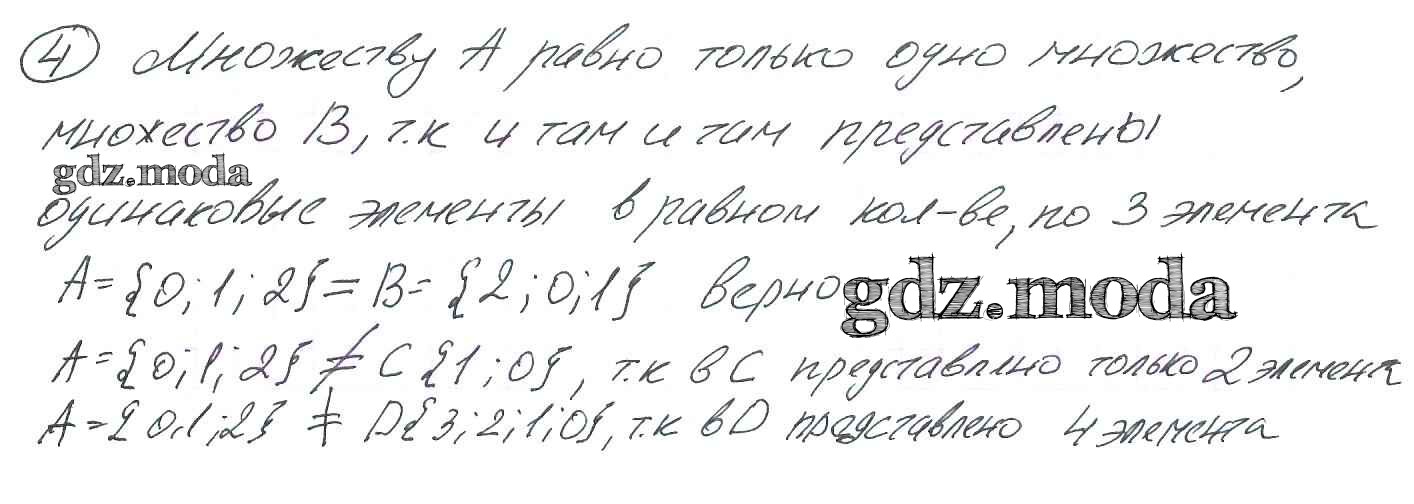 4 Множеству А равно только одно множество,
множество В, т.к и там и там представлены
gdz.moda
одинаковые элементы в равном кол-ве, по 3 элемента
А={0;1;2}=В={2;0;1} верно gdz.moda
А={0;1;2} ≠ С {1;0}, т.к в С представлено только 2 элемента
А={0.1;2} ≠ D{3;2;1;0}, т.к в D представлено 4 элемента